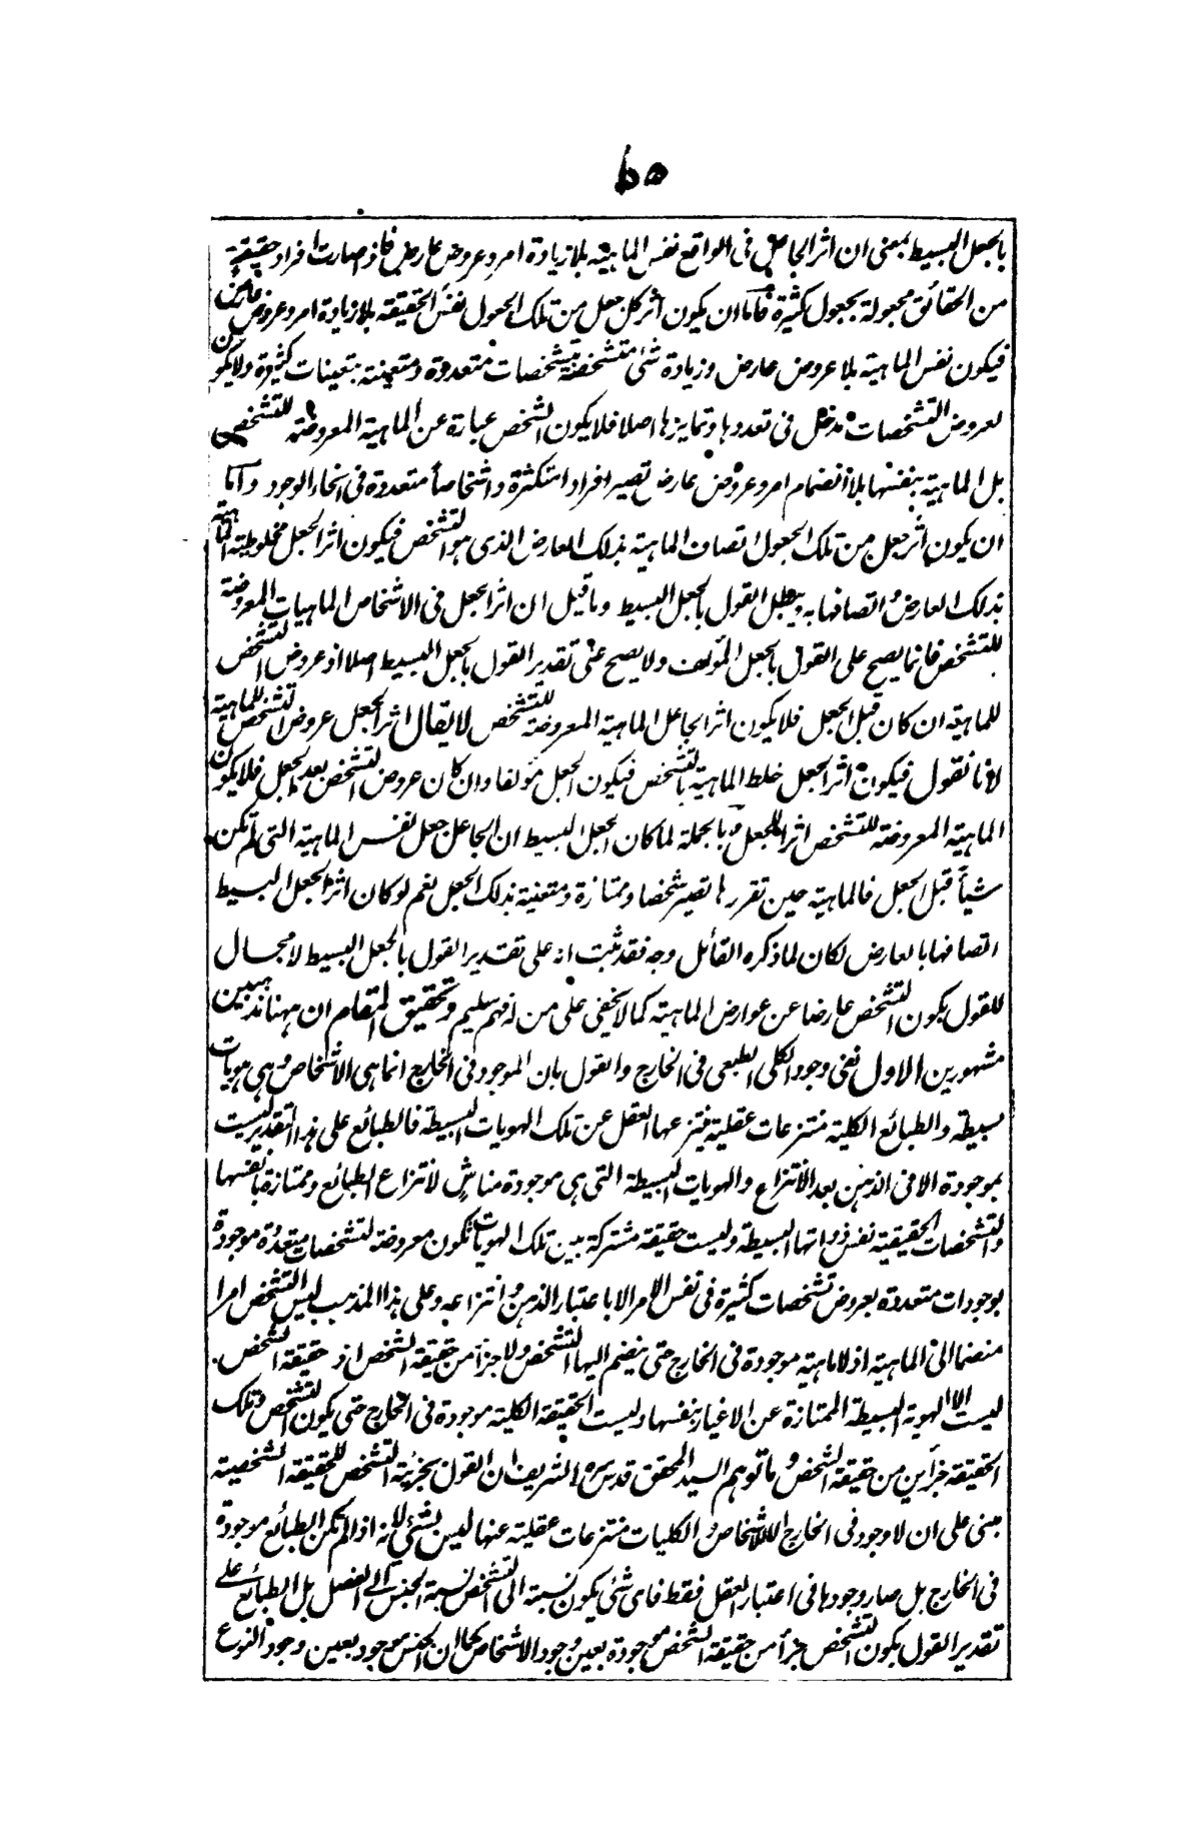 ٦٥
بالجعل البسيط بمعنى ان اثر الجاعل فى الواقع نفس الماهية بلا زيادة امر و عروض عارض فاذ صارت افراد حقيقة
من الحقائق مجعولة بجعول كثيرة فاما ان يكون اثر كل جعل من تلك الجعول نفس الحقيقة بلا زيادة امر و عروض عارض
فيكون نفس الماهية بلا عروض عارض و زيادة شئ متشخصة بتشخصات متعددة و متعينة بتعينات كثيرة ولا يكون
لعروض التشخصات مدخل فى تعددها و تمايزها اصلا فلا يكون الشخص عبارة عن الماهية المعروضة للتشخص
بل الماهية بنفسها بلا انضمام امر و عروض عارض تصير افرادا متكثرة و اشخاصا متعددة فى انحاء الوجود و اما
ان يكون اثر جعل من تلك الجعول اتصاف الماهية بذلك العارض الذى هو التشخص فيكون اثر الجعل مخلوطية الماهية
بذلك العارض و اتصافها به و يبطل القول بالجعل البسيط و ما قيل ان اثر الجعل فى الاشخاص الماهيات المعروضة
للتشخص فانما يصح على القول بالجعل المؤلف ولا يصح على تقدير القول بالجعل البسيط اصلا اذ عروض التشخص
للماهية ان كان قبل الجعل فلا يكون اثر الجاعل الماهية المعروضة للتشخص لا يقال اثر الجعل عروض التشخص للماهية
لانا نقول فيكون اثر الجعل خلط الماهية بالتشخص فيكون الجعل مؤلفا و ان كان عروض التشخص بعد الجعل فلا يكون
الماهية المعروضة للتشخص اثرا للجعل و بالجملة لما كان الجعل البسيط ان الجاعل جعل نفس الماهية التى لم تكن
شيأ قبل الجعل فالماهية حين تقررها تصير شخصا و ممتازة و متعينة بذلك الجعل نعم لو كان اثر الجعل البسيط
اتصافها بالعارض لكان لما ذكره القائل وجه فقد ثبت انه على تقدير القول بالجعل البسيط لا مجال
للقول بكون التشخص عارضا عن عوارض الماهية كما لا يخفى على من له فهم سليم و تحقيق المقام ان ههنا مذهبين
مشهورين الاول نفى وجود الكلى الطبعى فى الخارج و القول بان الموجود فى الخارج انما هى الاشخاص و هى هويات
بسيطة و الطبائع الكلية منتزعات عقلية ينتزعها العقل عن تلك الهويات البسيطة فالطبائع على هذا التقدير ليست
بموجودة الا فى الذهن بعد الانتزاع و الهويات البسيطة التى هى موجودة مناش لانتزاع الطبائع و ممتازة بانفسها
و التشخصات الحقيقية نفس ذواتها البسيطة و ليست حقيقة مشتركة بين تلك الهويات تكون معروضة لتشخصات متعددة موجودة
بوجودات متعددة بعروض تشخصات كثيرة فى نفس الامر الا باعتبار الذهن و انتزاعه و على هذا المذهب ليس التشخص امرا
منضما الى الماهية اذ لا ماهية موجودة فى الخارج حتى ينضم اليها التشخص ولا جزأ من حقيقة الشخص اذ حقيقة الشخص
ليست الا الهوية البسيطة الممتازة عن الاغيار بنفسها و ليست الحقيقة الكلية موجودة فى الخارج حتى يكون التشخص و تلك
الحقيقة جزأين من حقيقة الشخص و ما توهم السيد المحقق قدس سره الشريف ان القول بجزئية التشخص للحقيقة الشخصية
مبنى على ان لا وجود فى الخارج الا للاشخاص و الكليات منتزعات عقلية عنها ليس بشئ لانه اذا لم تكن الطبائع موجودة
فى الخارج بل صار وجودها فى اعتبار العقل فقط فاى شئ يكون نسبة الى التشخص نسبة الجنس الى الفصل بل الطبائع على
تقدير القول بكون التشخص جزأ من حقيقة الشخص موجودة بعين وجود الاشخاص كما ان الجنس موجود بعين وجود النوع